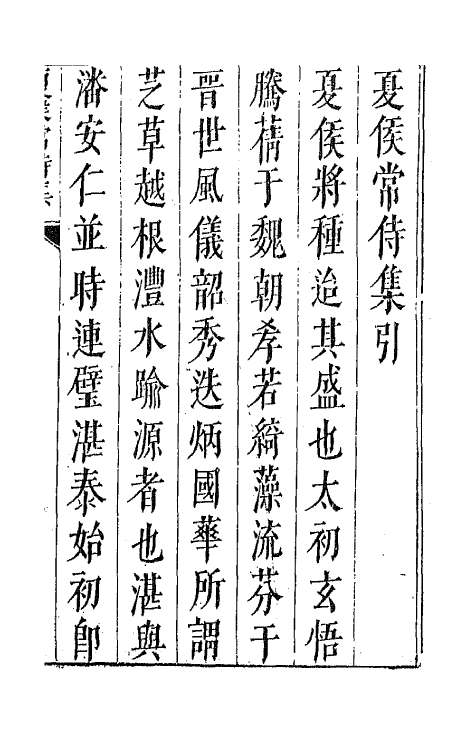 夏侯常侍集引
夏侯將種迨其盛也太初玄悟
騰蒨于魏朝孝若綺藻流芬于
晉世風儀韶秀迭炳國華所謂
芝草越根澧水踰源者也湛與
潘安仁並時連璧湛泰始初卽